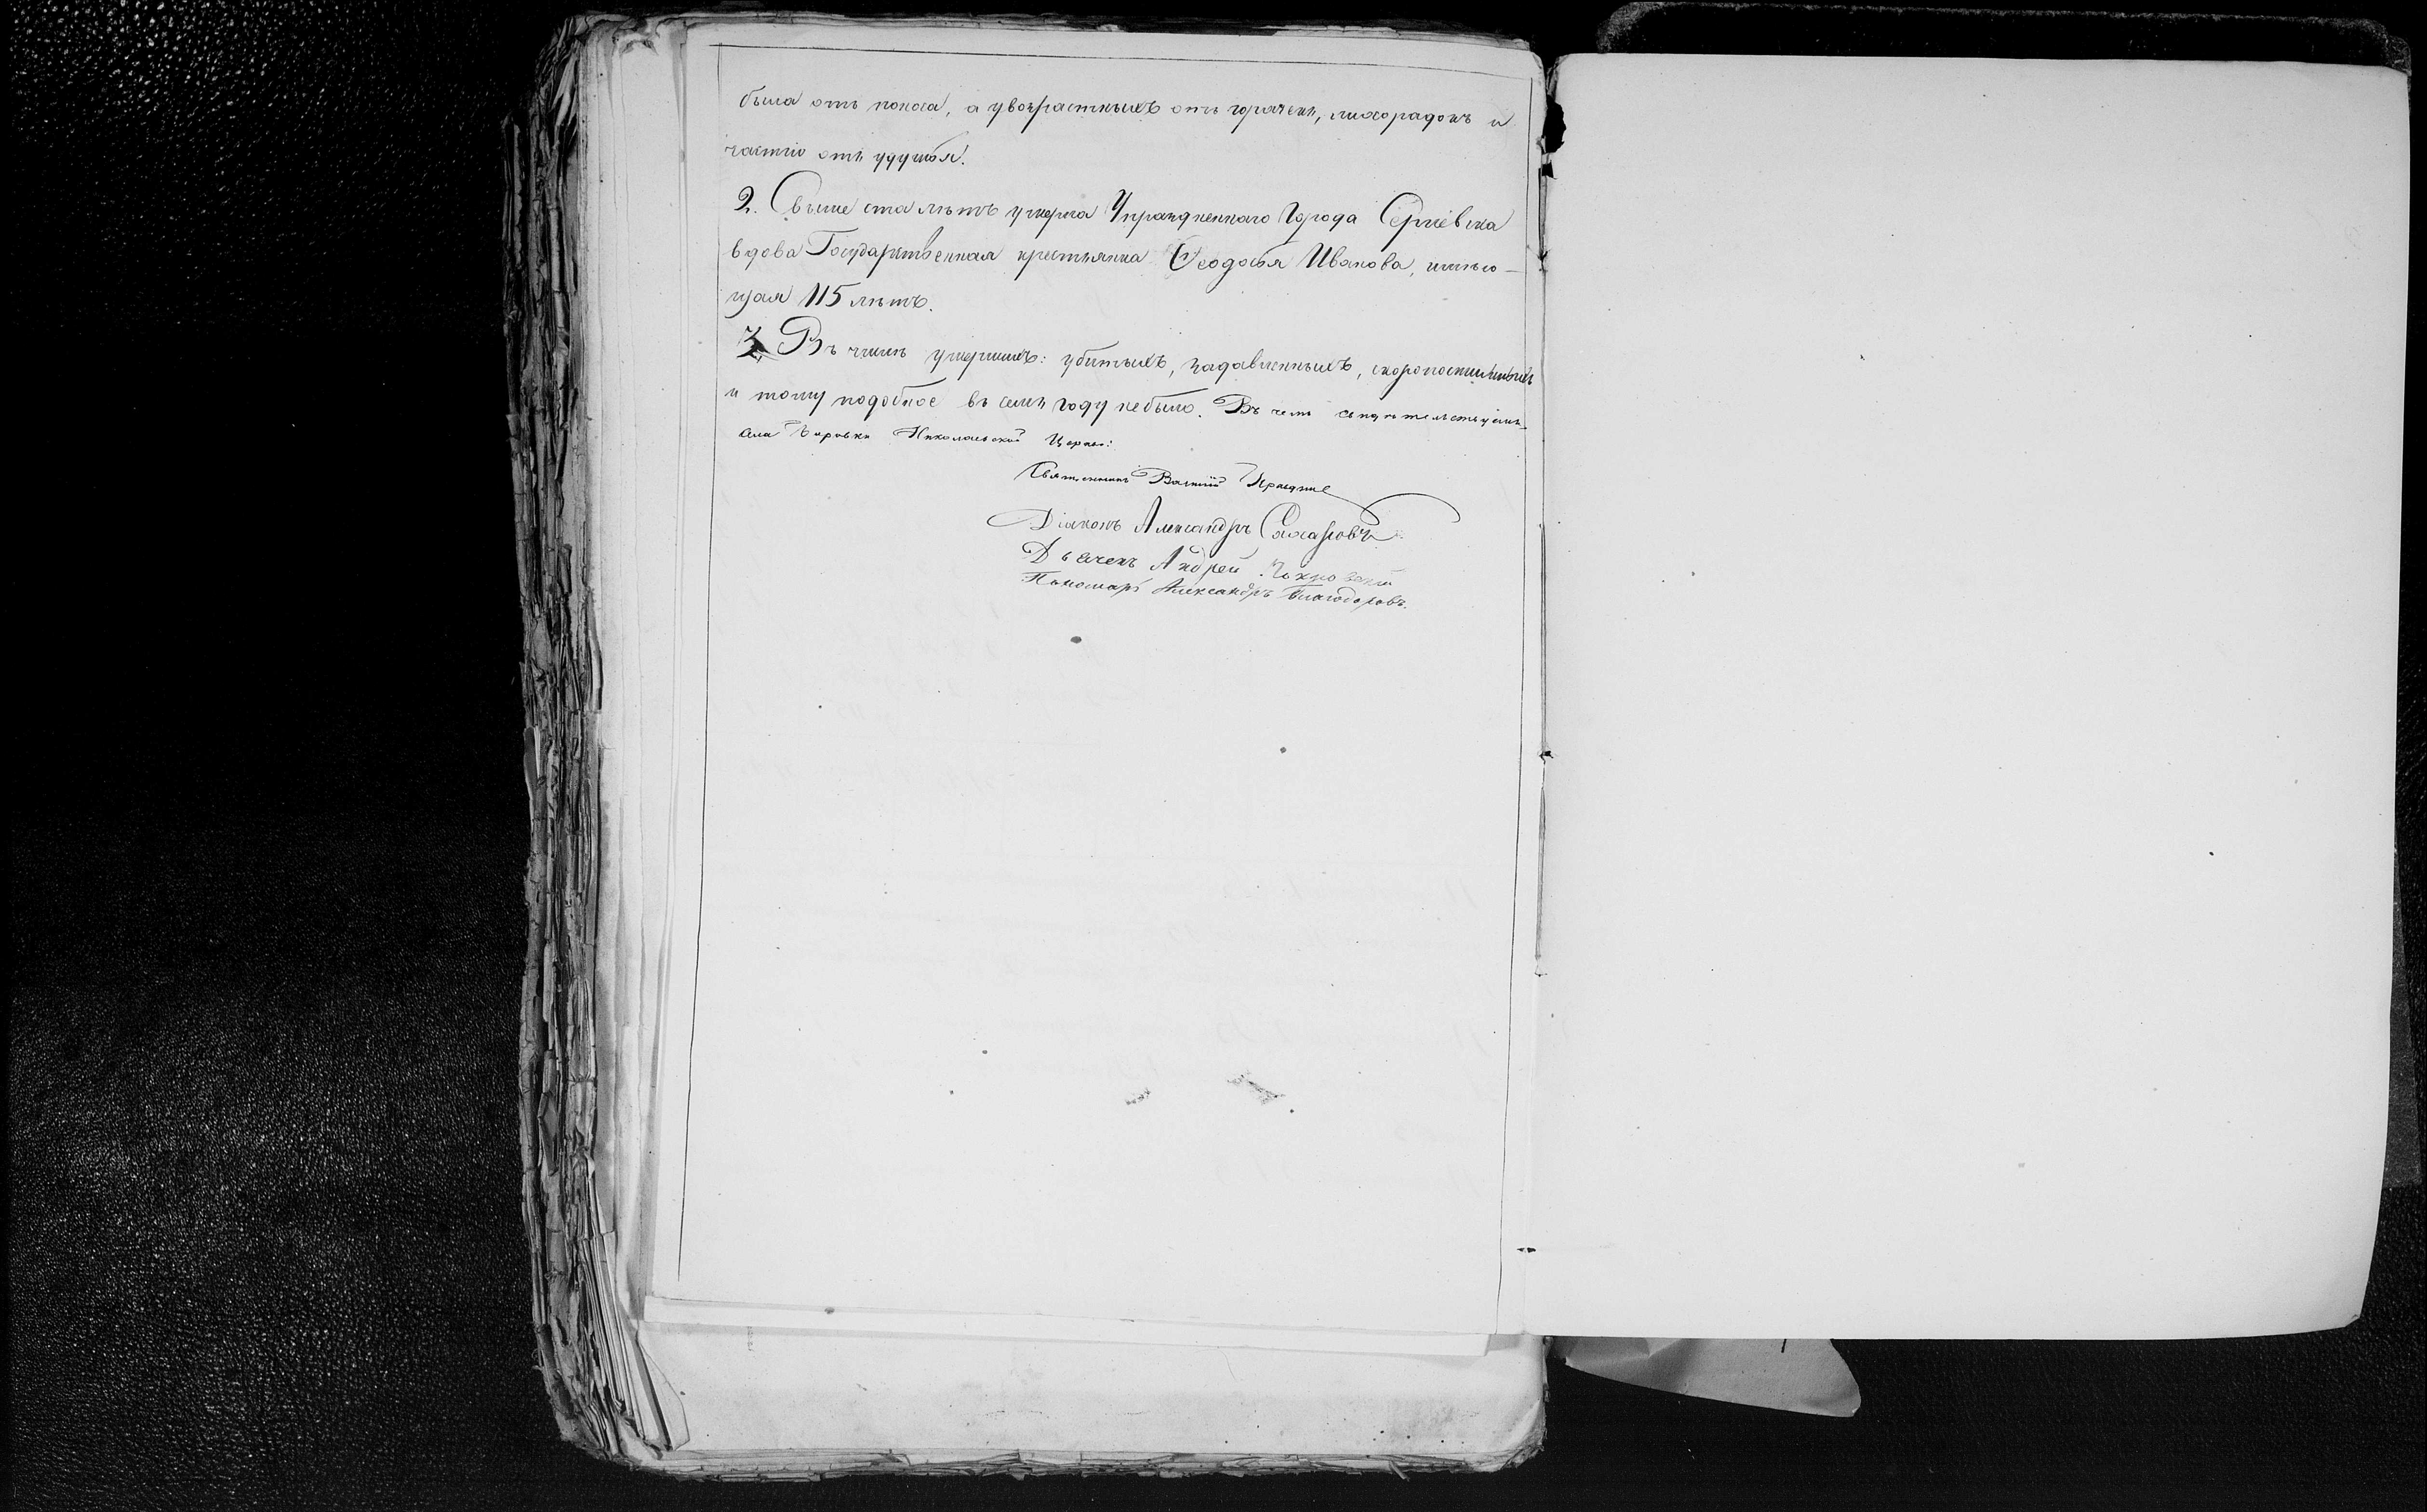 была отъ поноса, а увозрастныхъ отъ горячекъ, лихорадокъ и
частію отъ удушья.
2. Свыше ста лѣтъ умерла Упраздненнаго Города Сергіевска
вдова Государственная крестьянка Ѳеодосья Иванова, имѣю-
щая 115 лѣтъ.
3. Въ числѣ умершихъ: убитыхъ, задавленныхъ, скоропостижныхъ
и тому подобное въ семъ году небыло. Въ чемъ свидѣтельствуемъ
села Боровки Николаевской Церкви:
Священникъ Василій
Діаконъ Александръ
Дьячекъ Андрей Покровскій
Пономарь Александръ Благодаровъ.